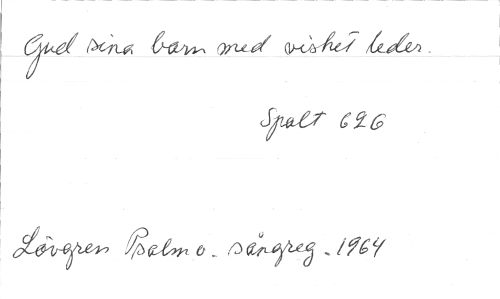 Gud sina barn med vishet leder.
Spalt 626
Lövgren Psalm o. sångreg. 1964